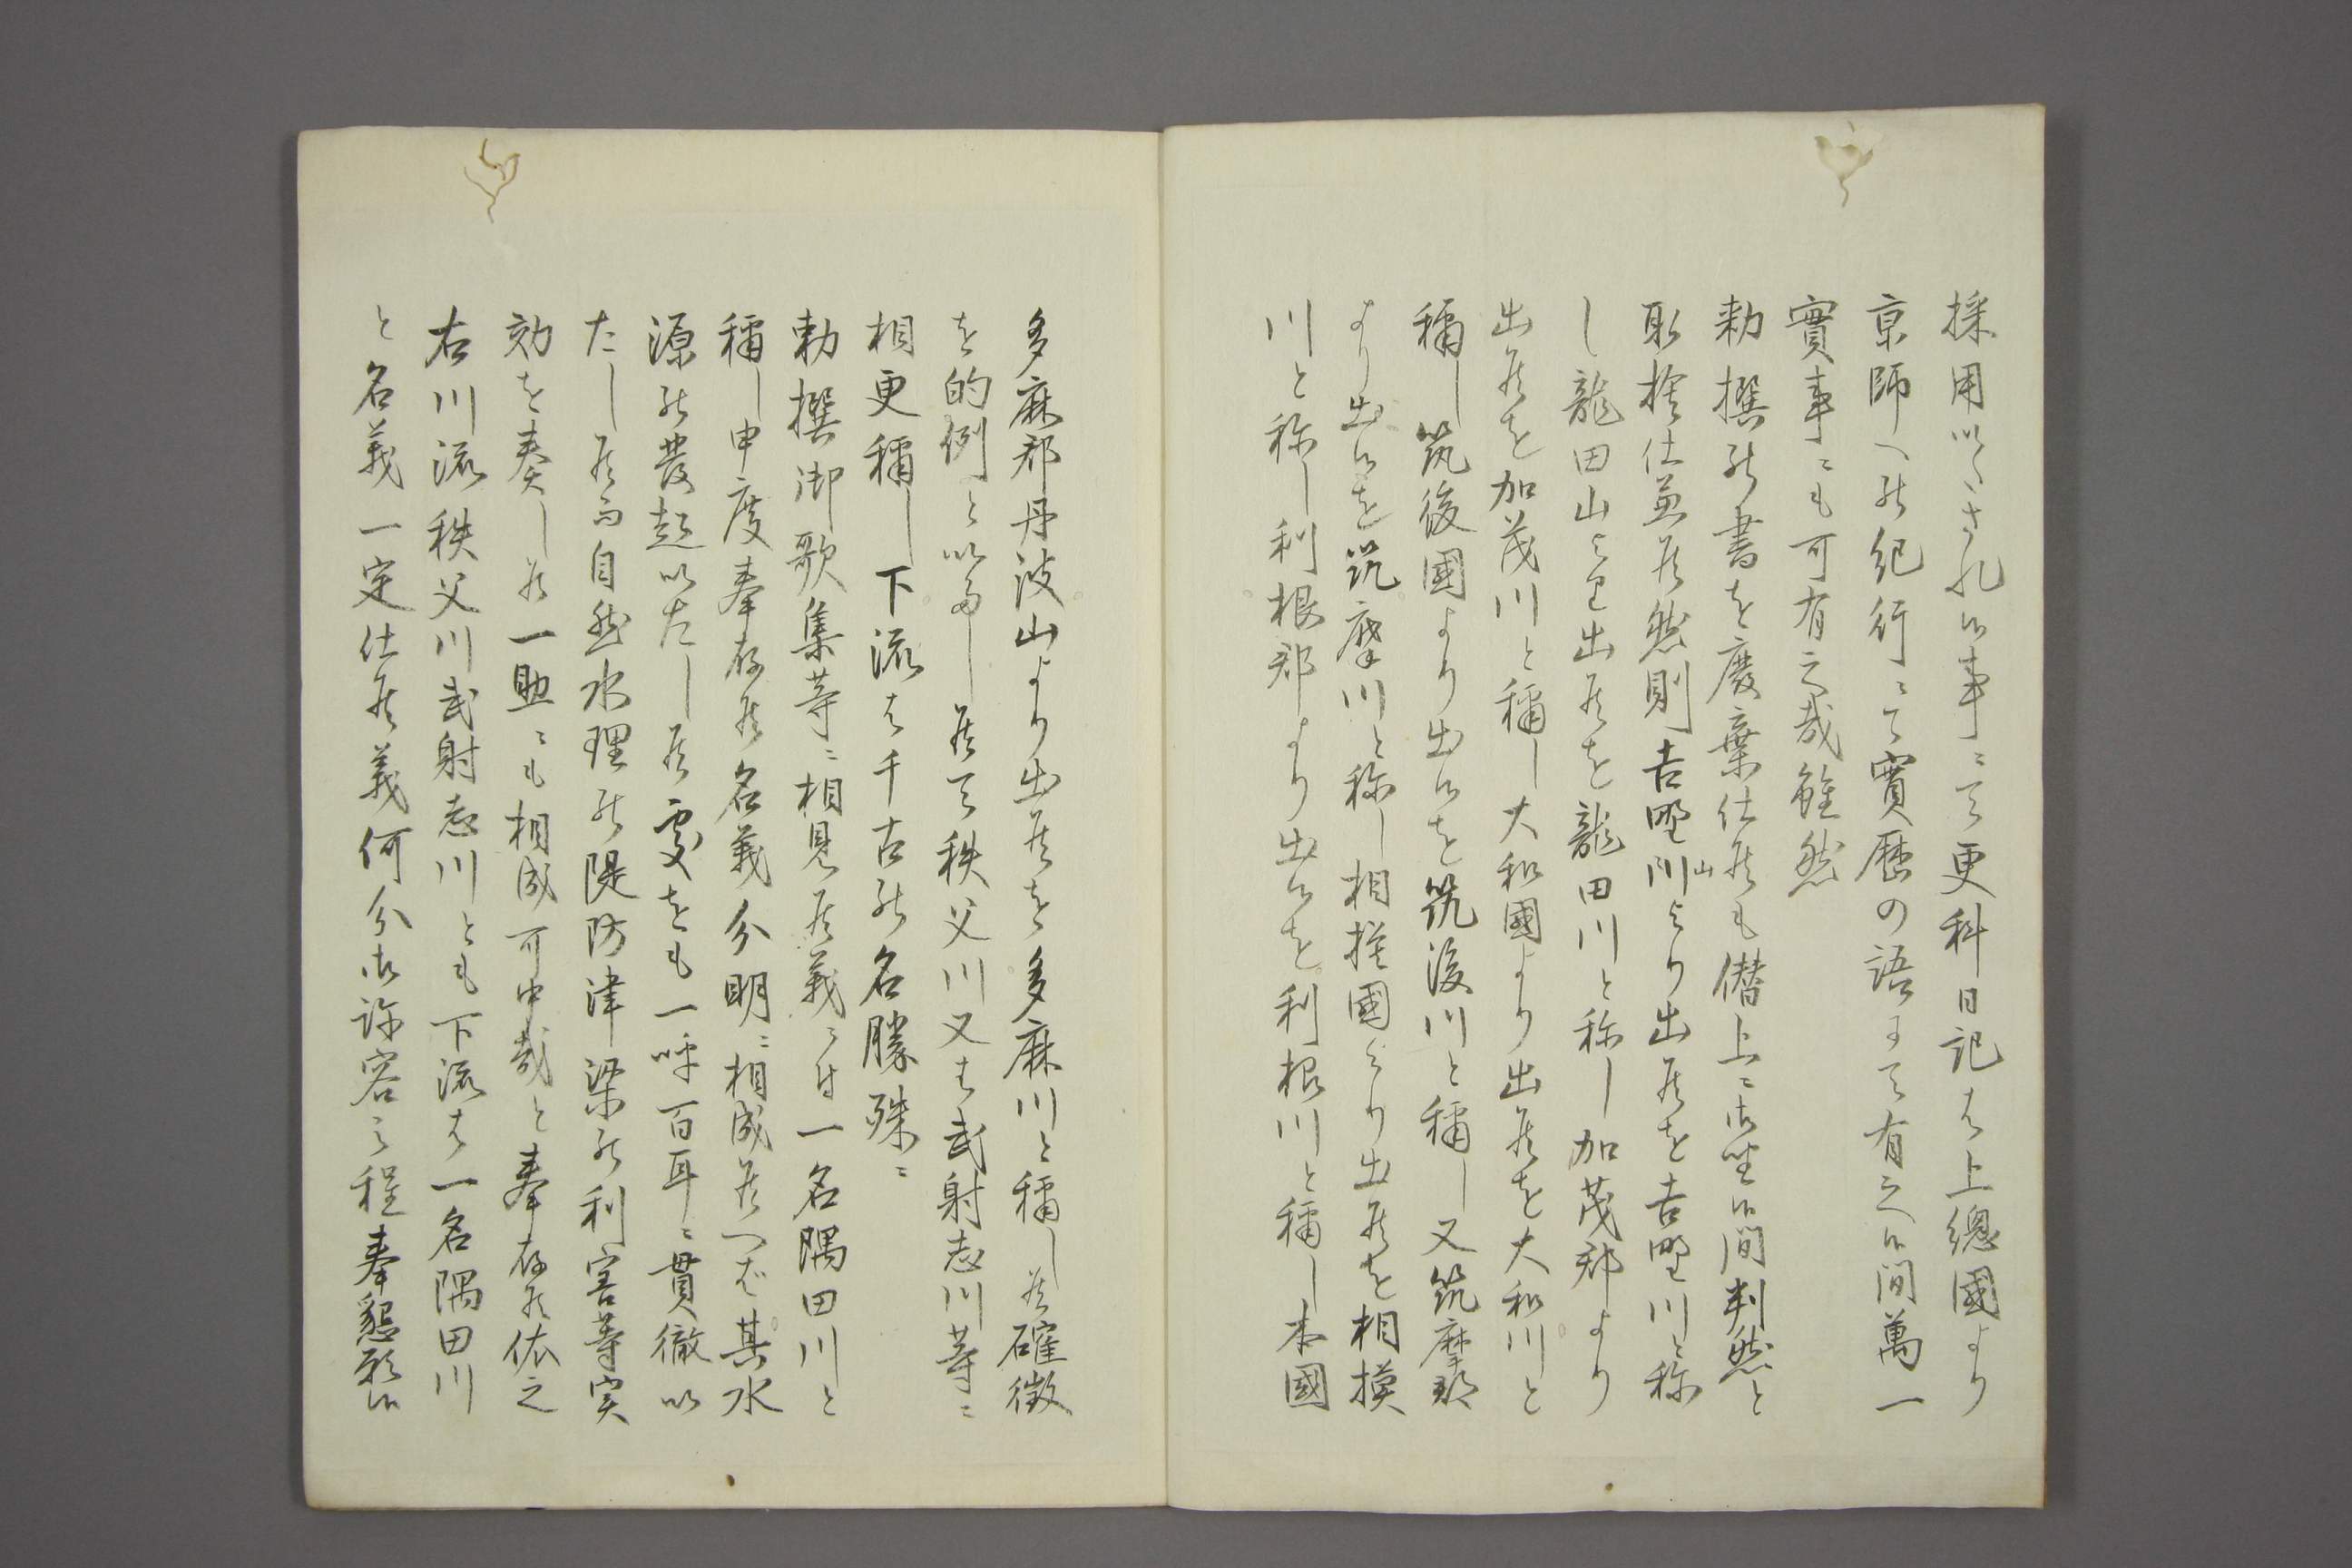 採用いたされ候事ニて更科日記は上總國より
京師への紀行ニて實歴の語にて有之候間萬一
實事ニも可有之哉雖然
勅撰の書を廢棄仕候も僭上ニ御坐候間判然と
取捨仕兼候然則吉野山より出候を吉野川と称
し龍田山より出候を龍田川と称し加茂郡より
出候を加茂川と稱し大和國より出候を大和川と
稱し筑後國より出候を筑後川と稱し又筑摩郡
より出候を筑摩川と称し相摸國より出候を相摸
川と称し利根郡より出候を利根川と稱し本國
多麻郡丹波山より出候を多麻川と稱し候確徴
を的例といたし候て秩父川又は武射志川等ニ
相更稱し下流は千古の名勝殊ニ
勅撰御歌集等ニ相見候義ニ付一名隅田川と
稱し申度奉存候名義分明ニ相成候へば其水
源の發起いたし候處をも一呼百耳ニ貫徹い
たし候而自然水理の隄防津梁の利害等実
効を奏し候一助ニも相成可申哉と奉存候依之
右川流秩父川武射志川とも下流は一名隅田川
と名義一定仕候義何分御許容之程奉懇願候